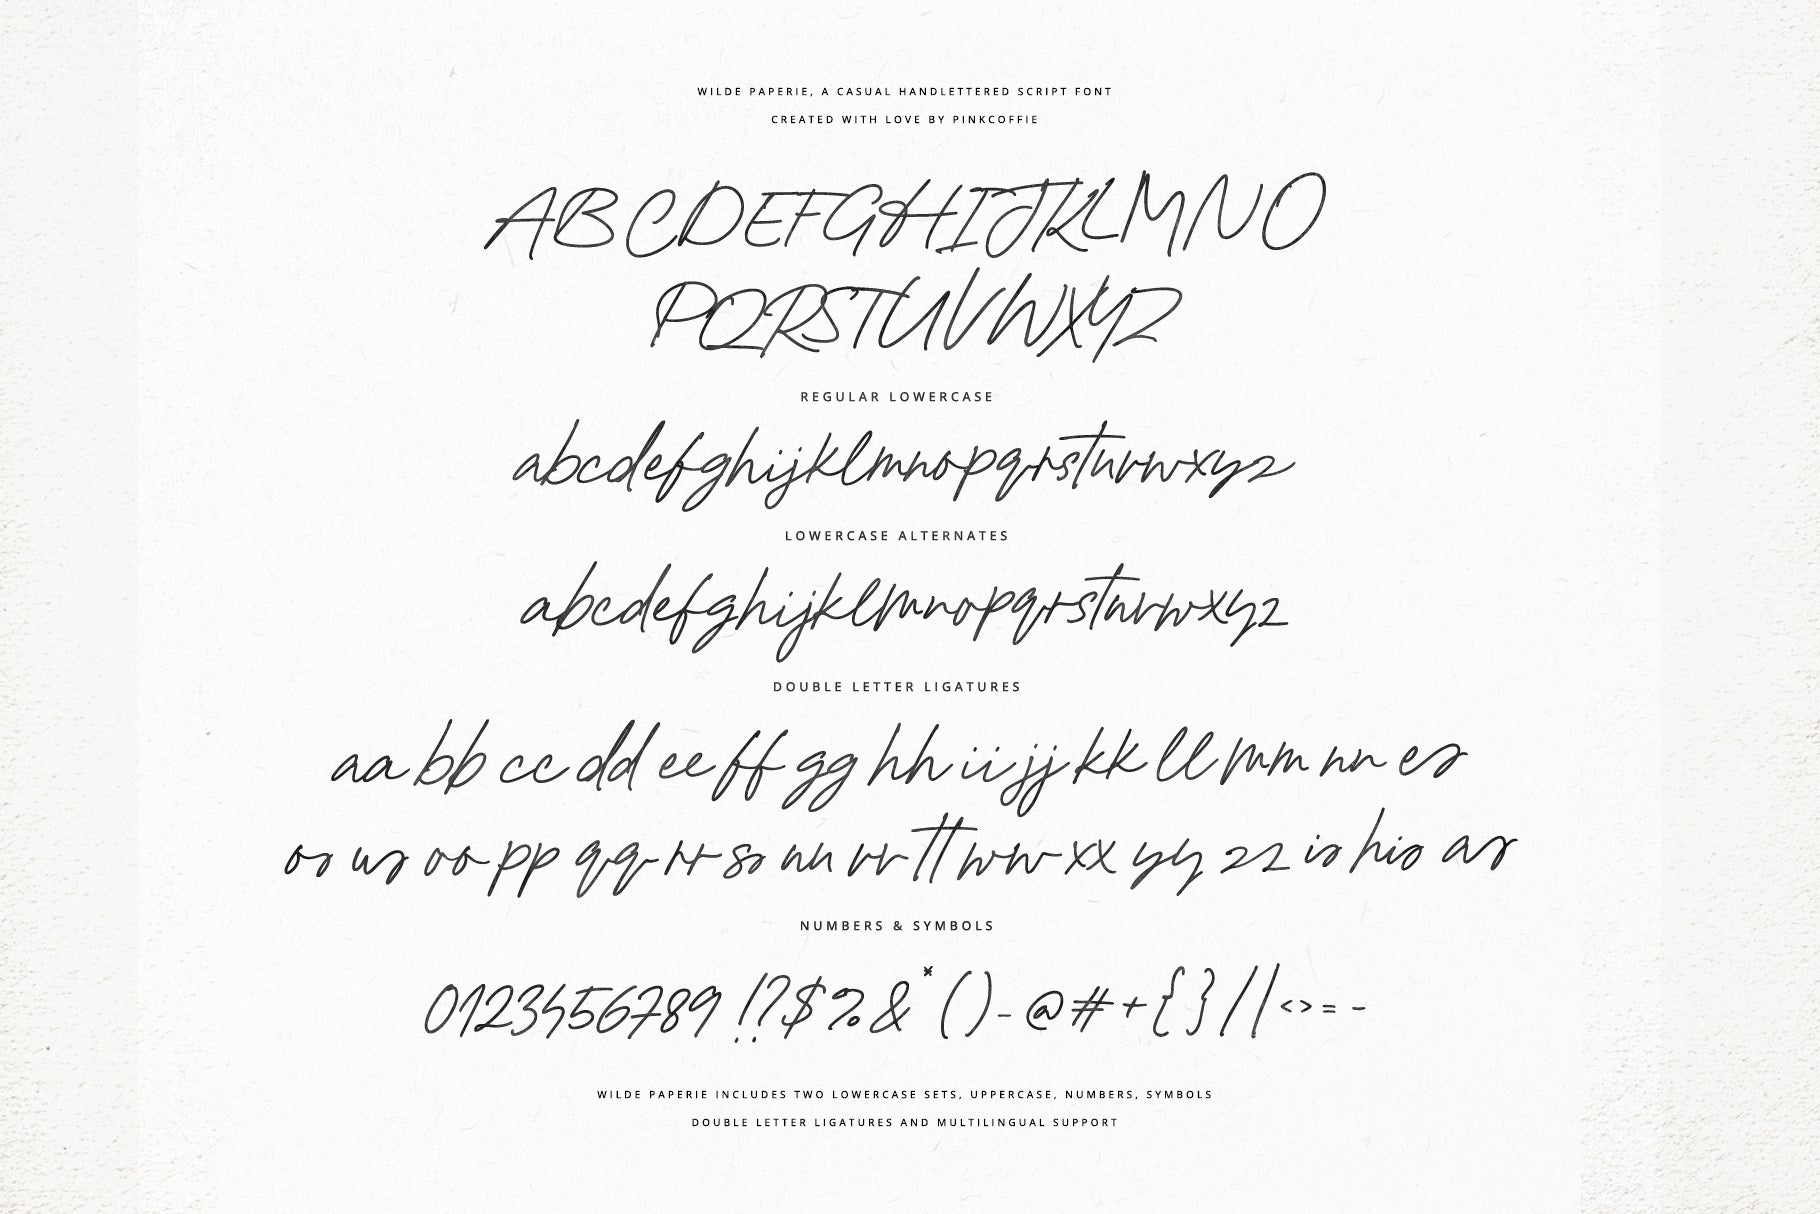 WILDE PAPERIE, A CASUAL HANDLETTERED SCRIPT FONT
CREATED WITH LOVE BY PINKCOFFIE
ABCDEFGHIJKLMNO
PQRSTUVWXYZ
REGULAR LOWERCASE
abcdefghijklmnopqrstuvwxyz
LOWERCASE ALTERNATES
abcdefghijklmnopqrstuvwxyz
DOUBLE LETTER LIGATURES
aa bb cc dd ee ff gg hh ii jj kk ll mm nn es
os us oo pp qq rr ss uu vv tt ww xx yy zz is his as
NUMBERS & SYMBOLS
0123456789 !?$%&*()-@#+{}//<>=-
WILDE PAPERIE INCLUDES TWO LOWERCASE SETS, UPPERCASE, NUMBERS, SYMBOLS
DOUBLE LETTER LIGATURES AND MULTILINGUAL SUPPORT